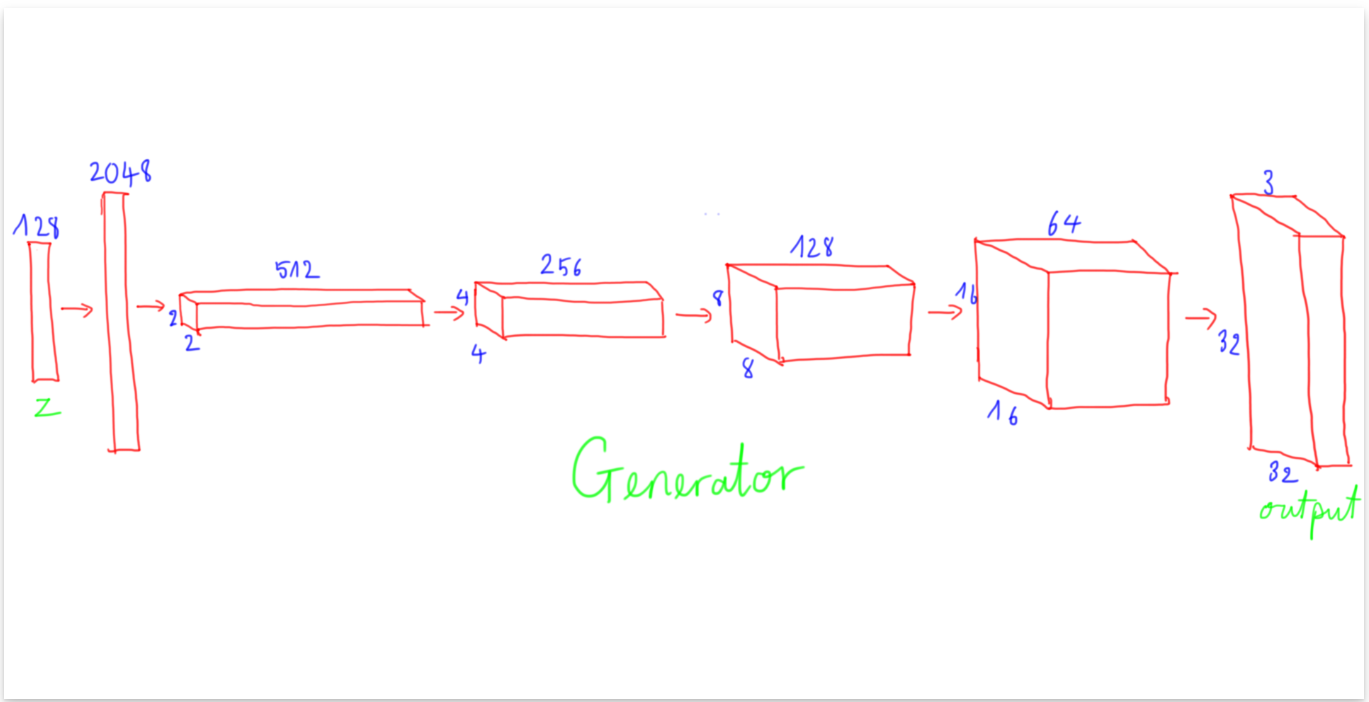 128
z
2048
512
2
2
256
4
4
128
8
8
64
16
16
3
32
32
output
Generator